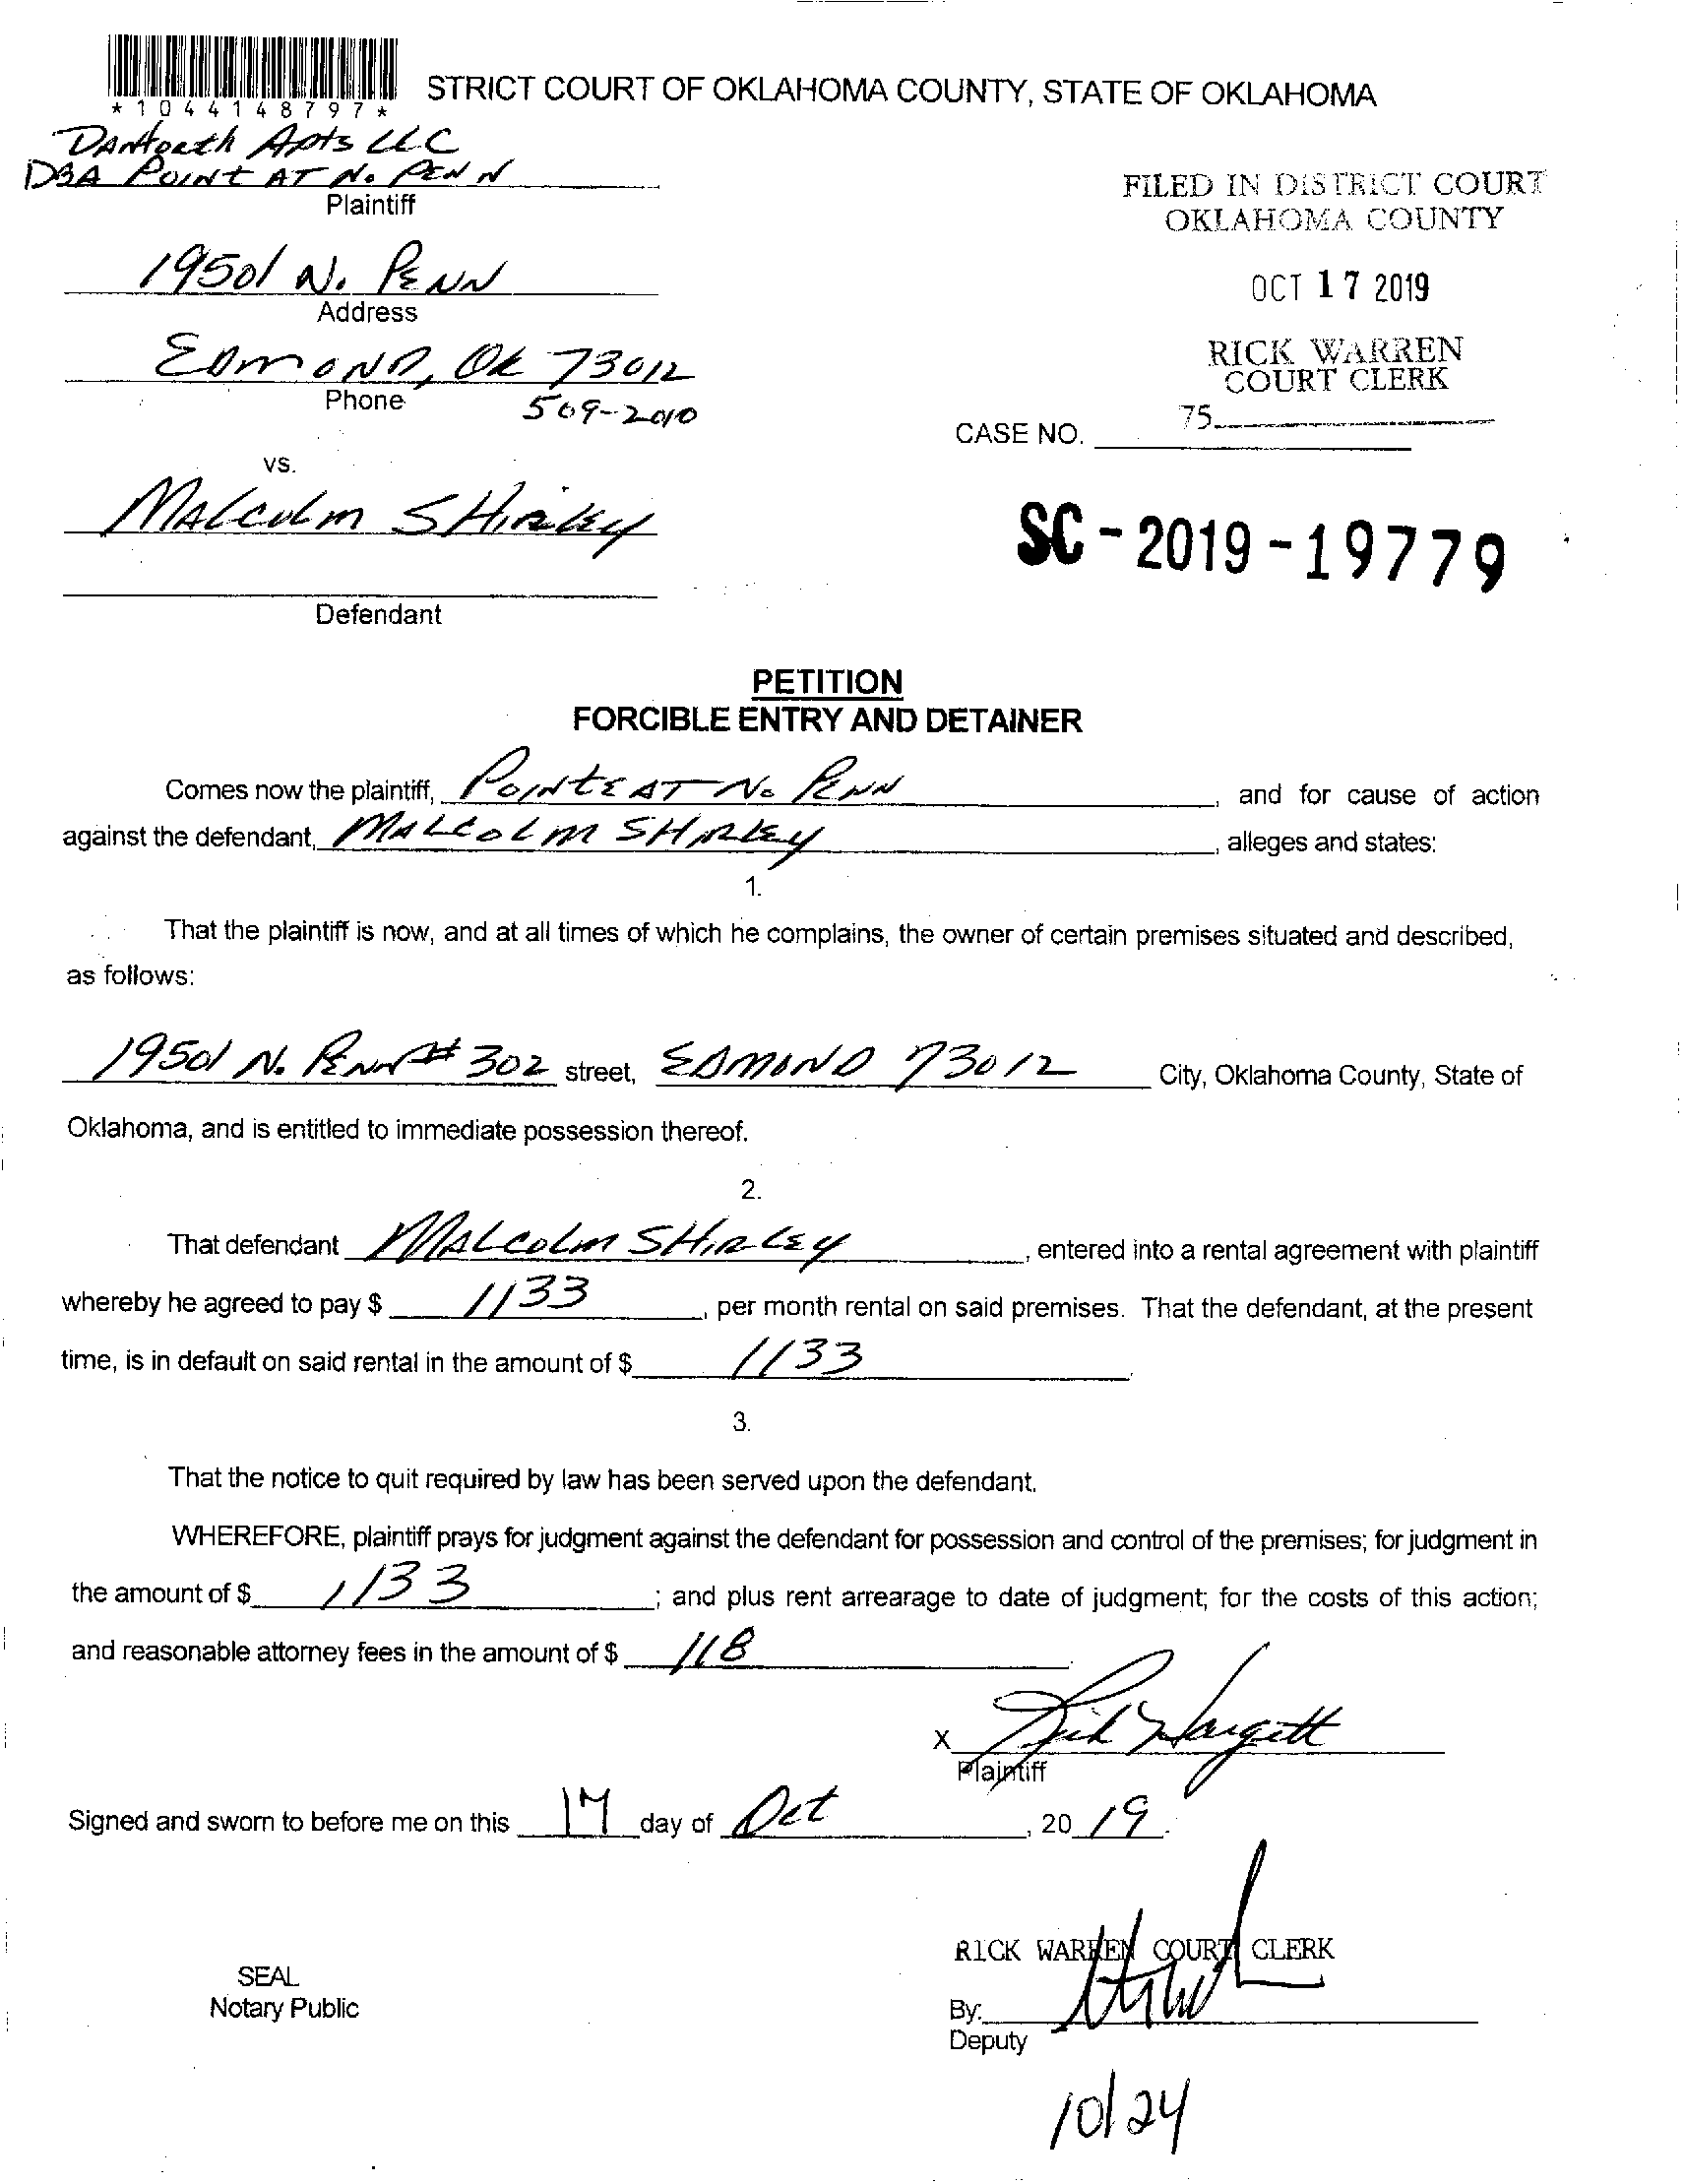 *1044148797*
STRICT COURT OF OKLAHOMA COUNTY, STATE OF OKLAHOMA
Danforth Apts LLC
DBA POINT AT No PENN
Plaintiff
FILED IN DISTRICT COURT
OKLAHOMA COUNTY
19501 N. PENN
Address
OCT 17 2019
EDMOND, OK 73012
Phone 509-2010
RICK WARREN
COURT CLERK
75
CASE NO.
vs.
MALCOLM SHIRLEY
SC-2019-19779
Defendant
PETITION
FORCIBLE ENTRY AND DETAINER
Comes now the plaintiff, POINTE AT No PENN, and for cause of action
against the defendant, MALCOLM SHIRLEY, alleges and states:
1.
That the plaintiff is now, and at all times of which he complains, the owner of certain premises situated and described,
as follows:
19501 N. PENN #302 street, EDMOND 73012 City, Oklahoma County, State of
Oklahoma, and is entitled to immediate possession thereof.
2.
That defendant MALCOLM SHIRLEY, entered into a rental agreement with plaintiff
whereby he agreed to pay $ 1133, per month rental on said premises. That the defendant, at the present
time, is in default on said rental in the amount of $ 1133.
3.
That the notice to quit required by law has been served upon the defendant.
WHEREFORE, plaintiff prays for judgment against the defendant for possession and control of the premises; for judgment in
the amount of $ 1133; and plus rent arrearage to date of judgment; for the costs of this action;
and reasonable attorney fees in the amount of $ 118
X Hargett
Plaintiff
Signed and sworn to before me on this 17 day of Oct, 20 19.
RICK WARREN COURT CLERK
SEAL
Notary Public
By:
Deputy
10/24